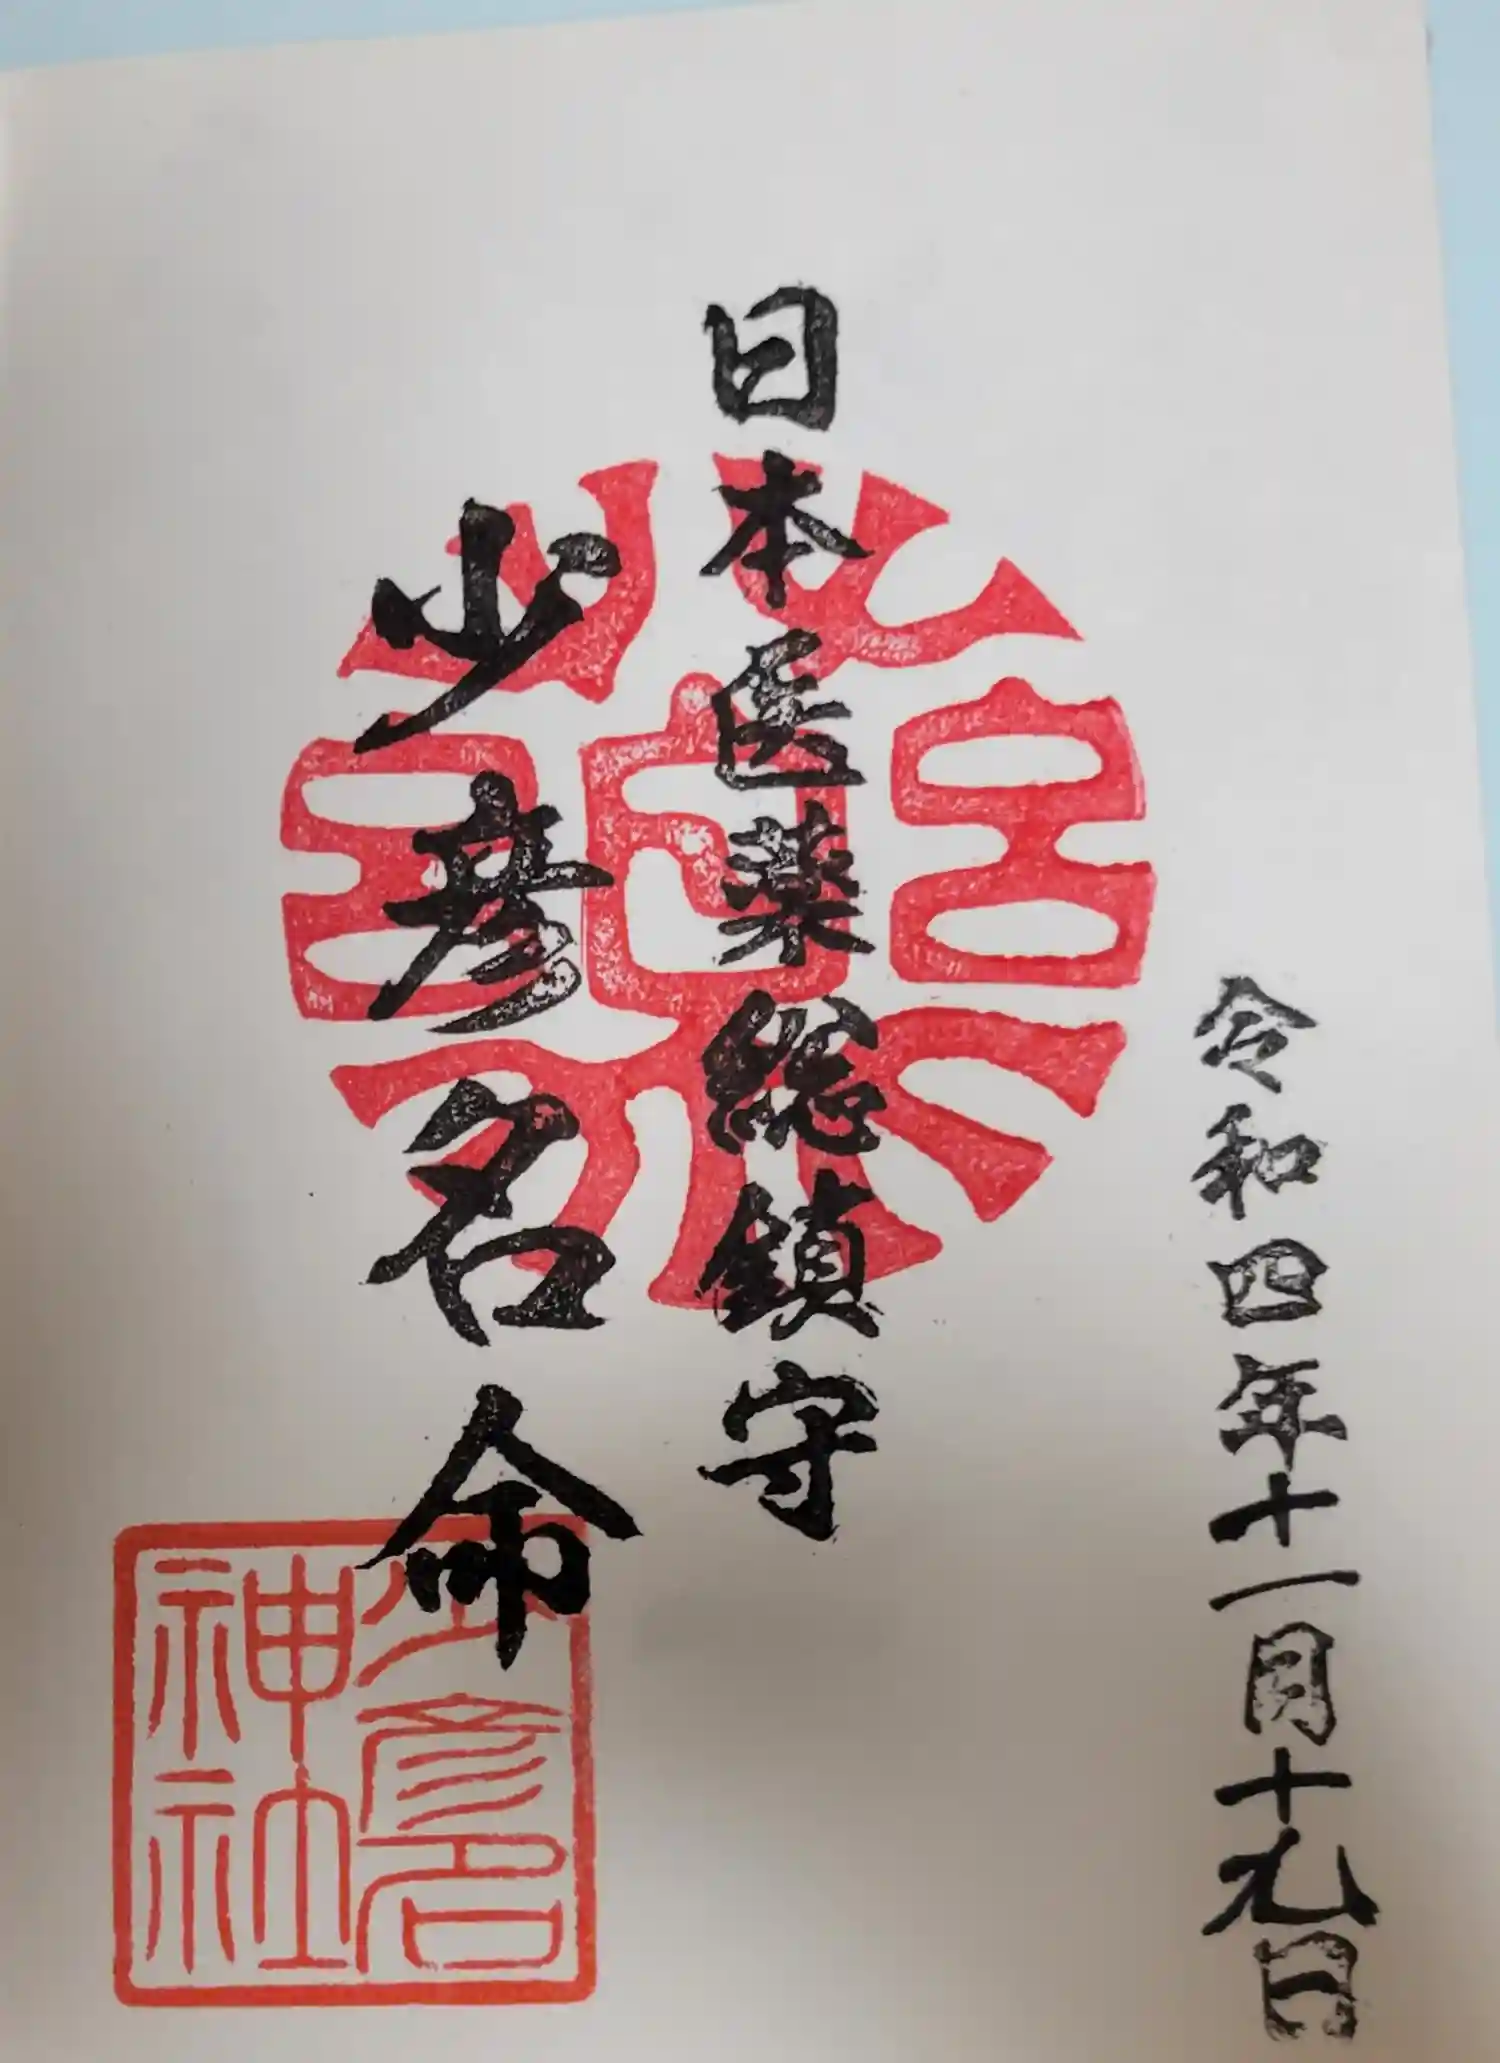 令和四年十一月十九日
日本医薬総鎮守
少彦名命
少彦名
神社